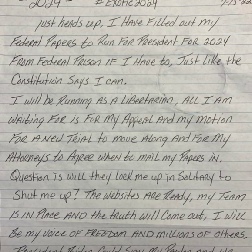 2024 # Exotic2024
just heads up, I have filled out my
Federal Papers to Run For President For 2024
From Federal Prison if I have to, Just like the
Constitution Says I can.
I will be Running as a Libertarian, All I am
waiting For is For my Appeal and my motion
For A New Trial to move Along and For my
Attorneys to Agree when to mail my Papers in,
Question is will they lock me up in Solitary to
Shut me up? The websites are Ready, my Team
is in Place and the truth will Come out, I will
Be my voice of Freedom and millions of others.
President Could Say my and